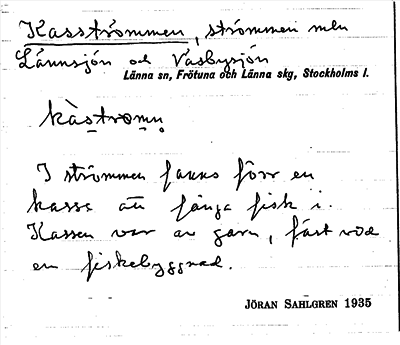 Kasströmmen, strömmen mellan
Lännsjön och Vasbysjön
Länna sn, Frötuna och Länna skg, Stockholms l.
kàstromn
I strömmen fanns förr en
kasse att fånga fisk i.
Kassen var av garn, fäst vid
en fiskebyggnad.
JÖRAN SAHLGREN 1935